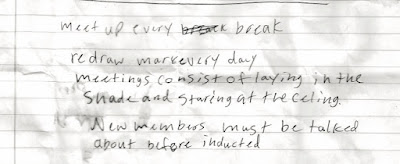 meet up every break
redraw mark every day
meetings consist of laying in the
shade and staring at the celing.
New members must be talked
about before inducted